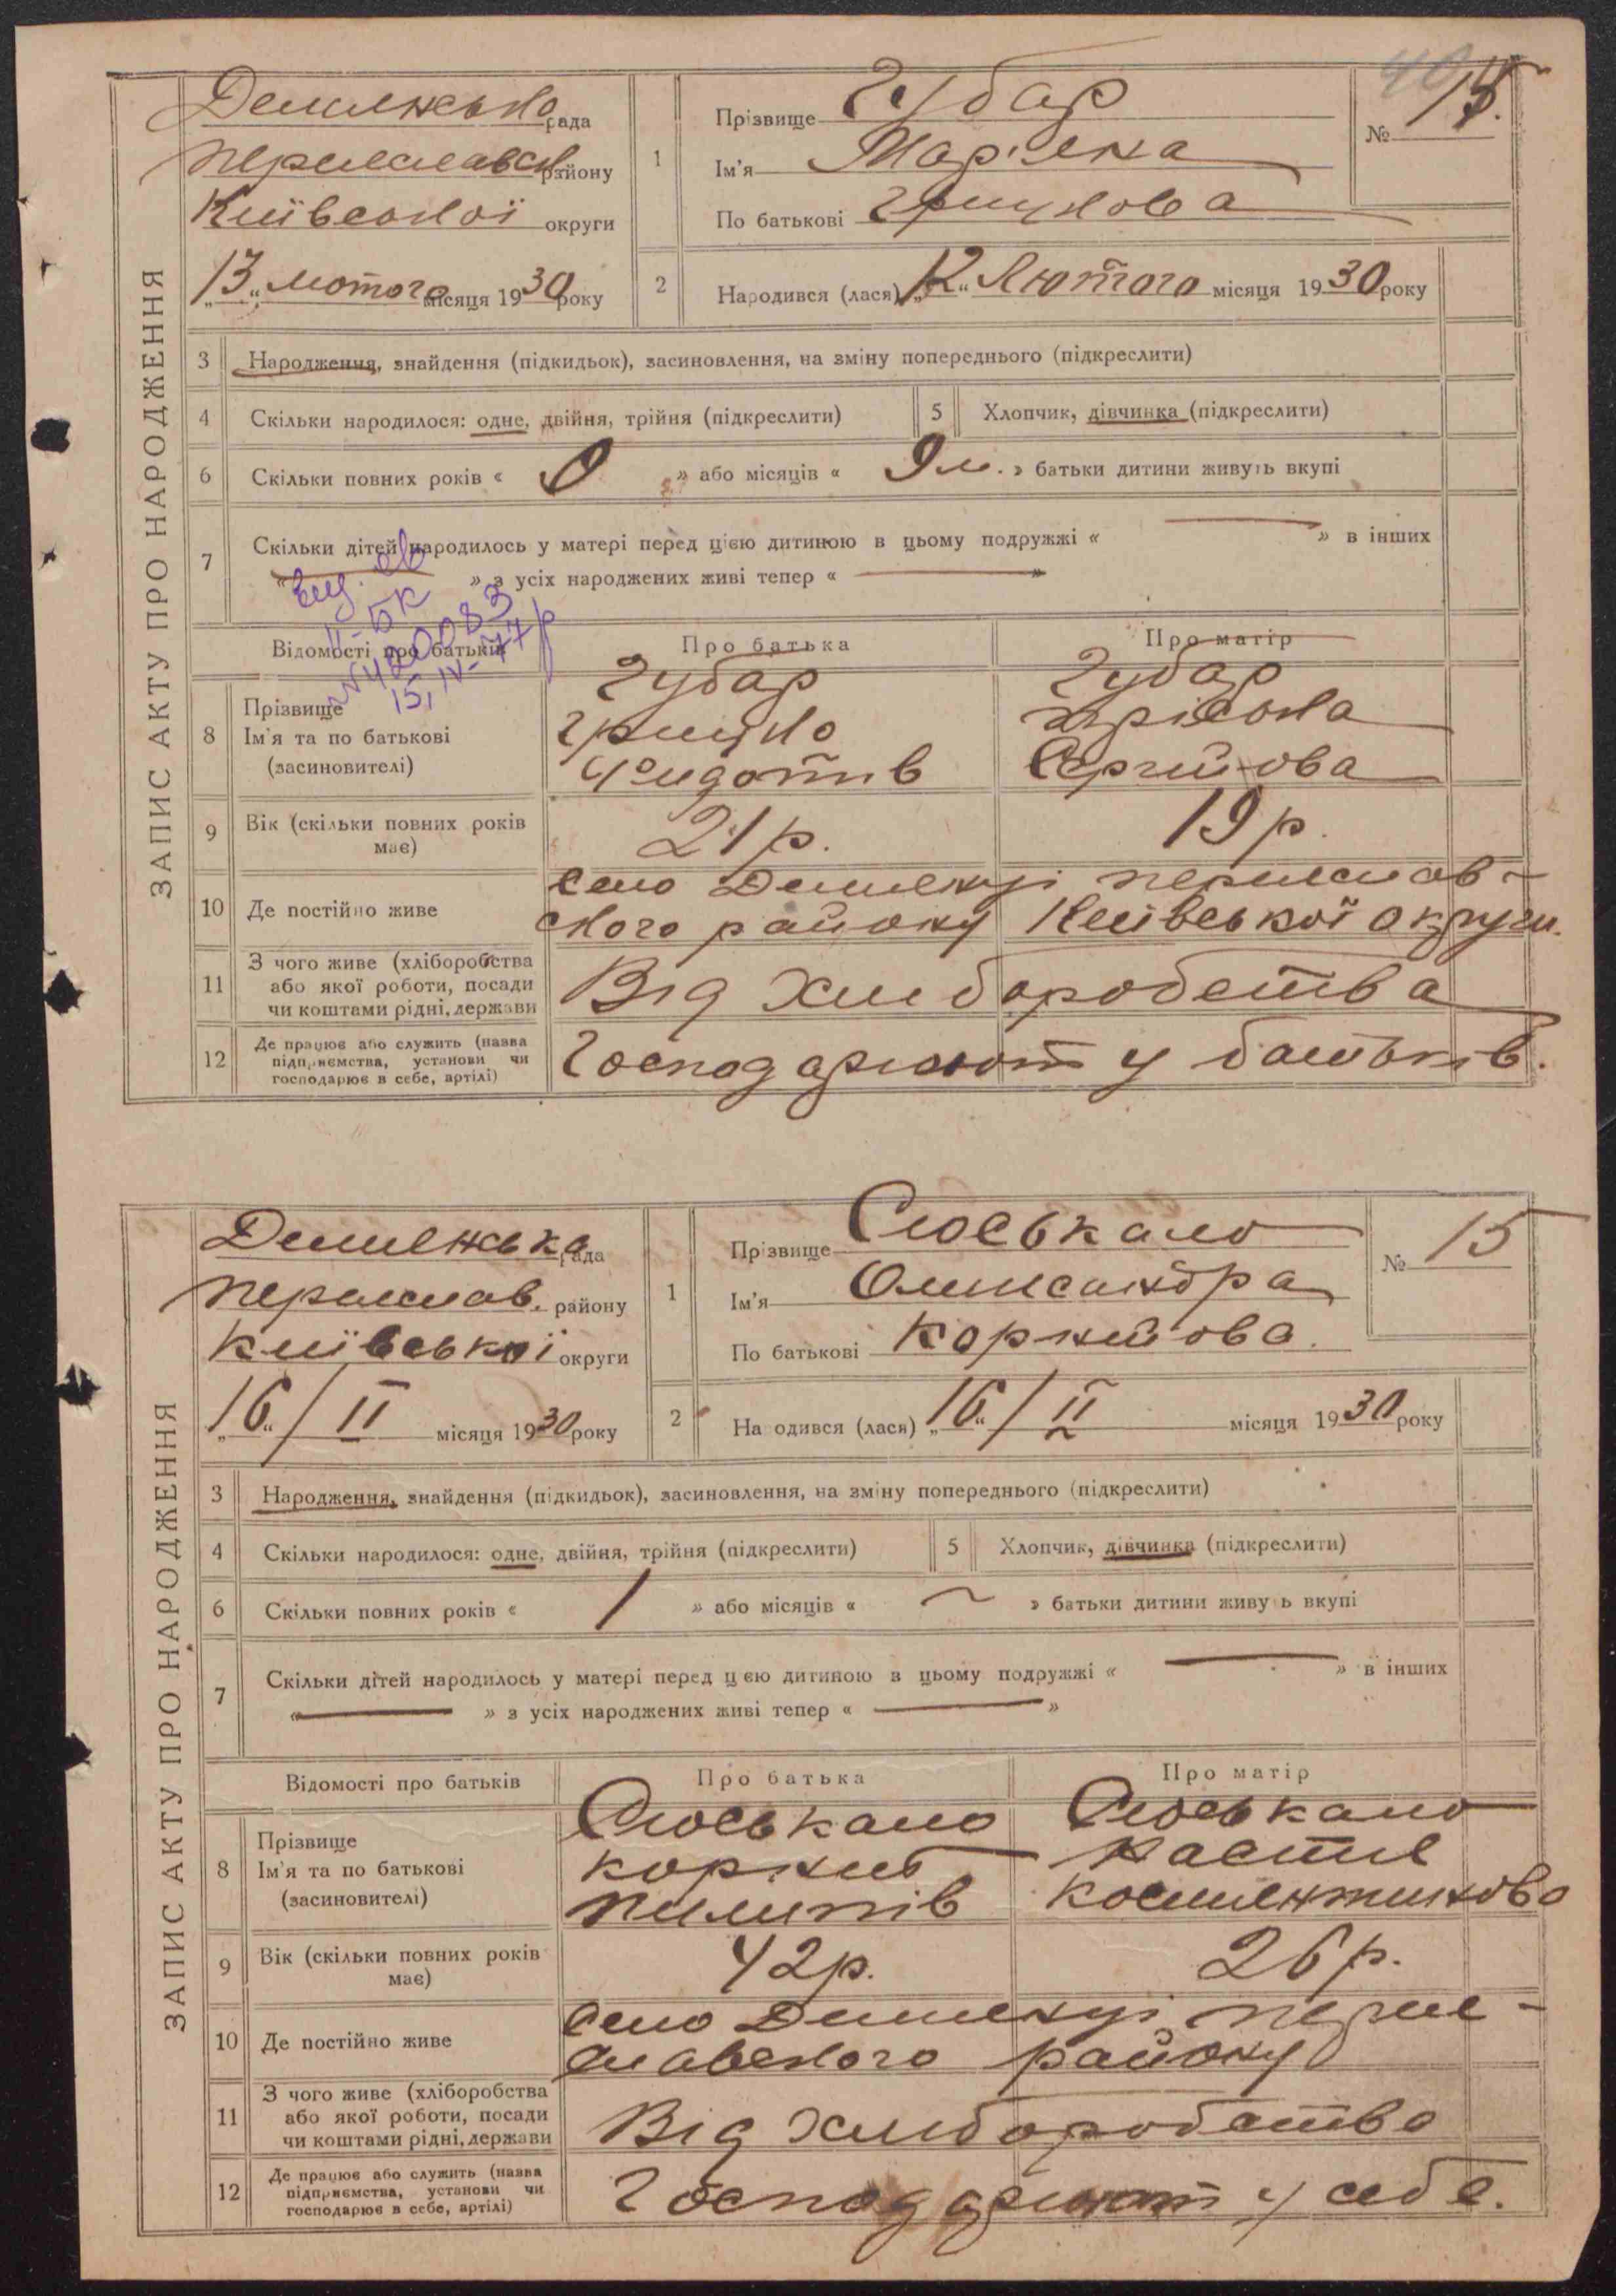 40
ЗАПИС АКТУ ПРО НАРОДЖЕННЯ
рада
району
Київської округи
„13“ лютого місяця 1930 року
1
Прізвище Губар
Ім'я
По батькові Грицькова
№
2
Народився (лася) „12“ Лютого місяця 1930 року
3 Народження, знайдення (підкидьок), засиновлення, на зміну попереднього (підкреслити)
4 Скільки народилося: одне, двійня, трійня (підкреслити)
5 Хлопчик, дівчинка (підкреслити)
6 Скільки повних років « 0 » або місяців « 9 м. » батьки дитини живуть вкупі
7 Скільки дітей народилось у матері перед цією дитиною в цьому подружжі « — » в інших
« — » з усіх народжених живі тепер « — »
15, IV-77р
Відомості про батьків
Про батька
Про матір
8
Прізвище
Ім'я та по батькові
(засиновителі)
Губар
Грицько
Губар
Сергійова
9 Вік (скільки повних років має)
21 р.
19 р.
10 Де постійно живе
село Демьянці Переяслав-
ського району Київської округи.
11 З чого живе (хліборобства
або якої роботи, посади
чи коштами рідні, держави
Від хліборобства
12 Де працює або служить (назва
підприємства, установи чи
господарює в себе, артілі)
Господарюют у батьків.
ЗАПИС АКТУ ПРО НАРОДЖЕННЯ
рада
Переяслав. району
Київської округи
„16“ / II місяця 1930 року
1
Прізвище Сюськало
Ім'я Олександра
По батькові Корнійова.
№ 15
2
На одився (лася) „16“ / II місяця 1930 року
3 Народження, знайдення (підкидьок), засиновлення, на зміну попереднього (підкреслити)
4 Скільки народилося: одне, двійня, трійня (підкреслити)
5 Хлопчик, дівчинка (підкреслити)
6 Скільки повних років « 1 » або місяців « ~ » батьки дитини живу ь вкупі
7 Скільки дітей народилось у матері перед ц ею дитиною в цьому подружжі « — » в інших
« — » з усіх народжених живі тепер « — »
Відомості про батьків
Про батька
Про матір
8
Прізвище
Ім'я та по батькові
(засиновителі)
Сюськало
Корній
Пилипів
Сюськало
Настя
9 Вік (скільки повних років має)
42 р.
26 р.
10 Де постійно живе
село Демьянці Перея-
славського району
11 З чого живе (хліборобства
або якої роботи, посади
чи коштами рідні, держави
Від хліборобства
12 Де працює або служить (назва
підприємства, установи чи
господарює в себе, артілі)
Господарюют у себе.